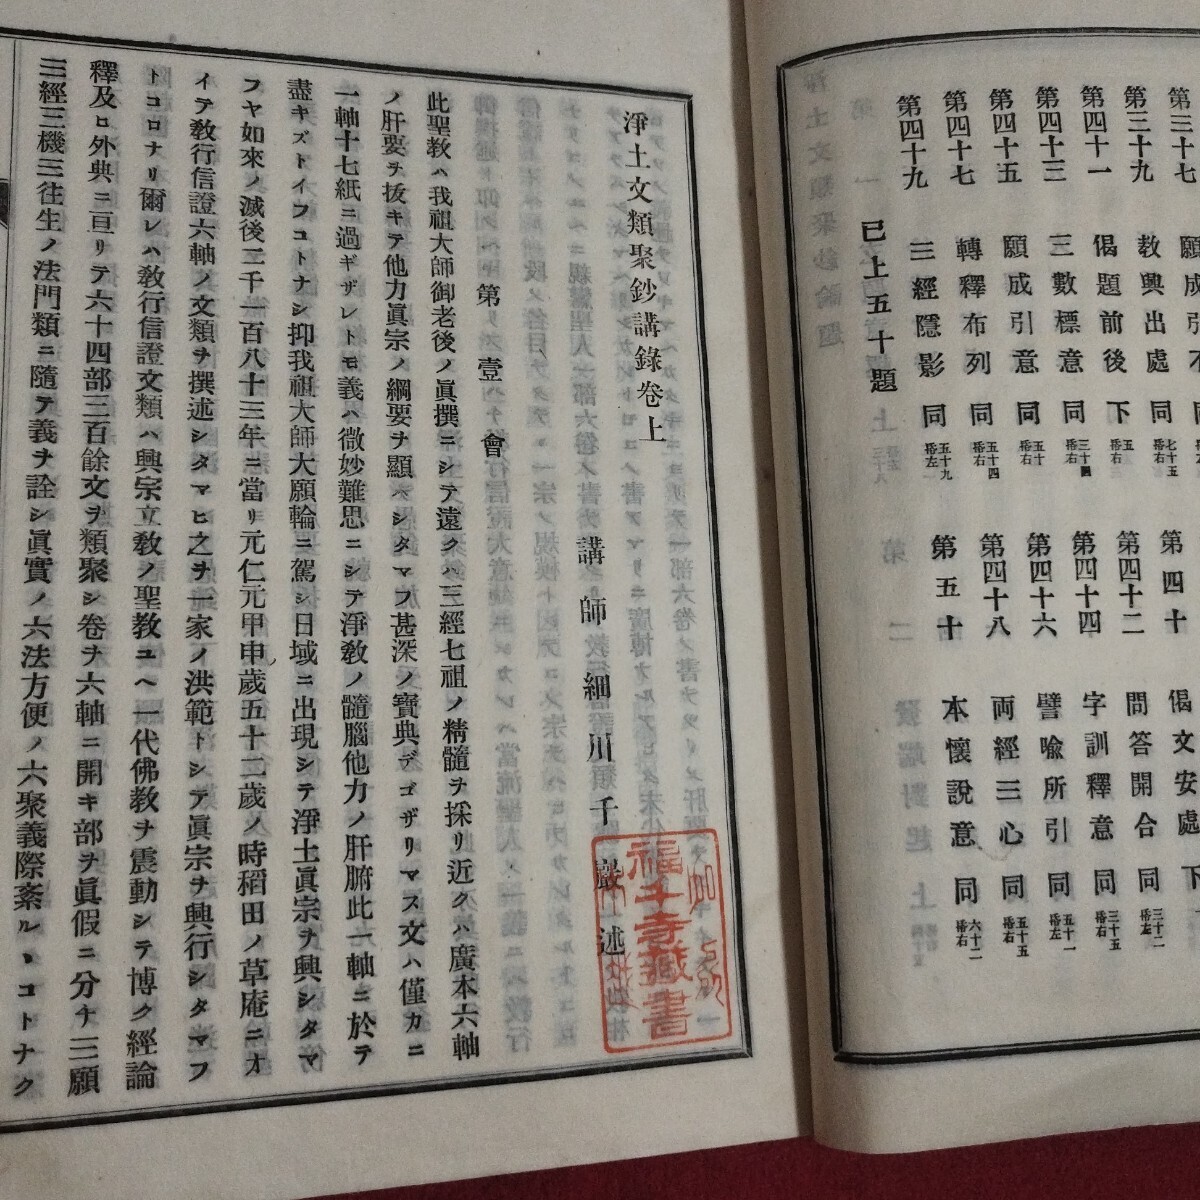 第三十七　願成引不
第三十九　教興出處　同　七十五番右
第四十一　偈題前後　下　五番右
第四十三　三數標意　同　三十四番右
第四十五　願成引意　同　五十番右
第四十七　轉釋布列　同　五十四番右
第四十九　三經隱影　同　五十九番左
已上五十題
第四十　偈文安處　下
第四十二　問答開合　同　三十二番右
第四十四　字訓釋意　同　三十五番右
第四十六　譬喩所引　同　五十一番左
第四十八　両經三心　同　五十五番右
第五十　本懷說意　同　六十二番右
淨土文類聚鈔講錄卷上
講師細川千巖述
第壹會
此聖教ハ我祖大師御老後ノ眞撰ニシテ遠クハ三經七祖ノ精髓ヲ採リ近クハ廣本六軸
ノ肝要ヲ拔キテ他力眞宗ノ綱要ヲ顯ハシタマフ甚深ノ寶典デゴザリマス文ハ僅カニ
一軸十七紙ニ過ギザレトモ義ハ微妙難思ニシテ淨教ノ髓腦他力ノ肝腑此一軸ニ於テ
盡キズトイフコトナシ抑我祖大師大願輪ニ駕シ日域ニ出現シテ淨土眞宗ヲ興シタマ
フヤ如來ノ滅後二千一百八十三年ニ當リ元仁元甲申歲五十二歲ノ時稻田ノ草庵ニオ
イテ教行信證六軸ノ文類ヲ撰述シタマヒ之ヲ一家ノ洪範トシテ眞宗ヲ興行シタマフ
トコロナリ爾レハ教行信證文類ハ興宗立教ノ聖教ユヘ一代佛教ヲ震動シテ博ク經論
釋及ロ外典ニ亘リテ六十四部三百餘文ヲ類聚シ卷ヲ六軸ニ開キ部ヲ眞假ニ分チ三願
三經三機三往生ノ法門類ニ隨テ義ヲ詮シ眞實ノ六法方便ノ六聚義際紊ルヽコトナク
藏書